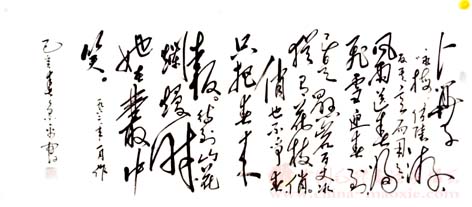 卜算子
咏梅 读陆游
反其意而用之
风雨送春归
飞雪迎春到
已是悬崖百丈冰
犹有花枝俏
俏也不争春
只把春来
报。待到山花
烂漫时
她在丛中
笑。一九六一年